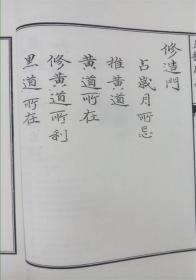 修造門
占歲月所忌
推黃道
黃道所在
修黃道所利
黑道所在